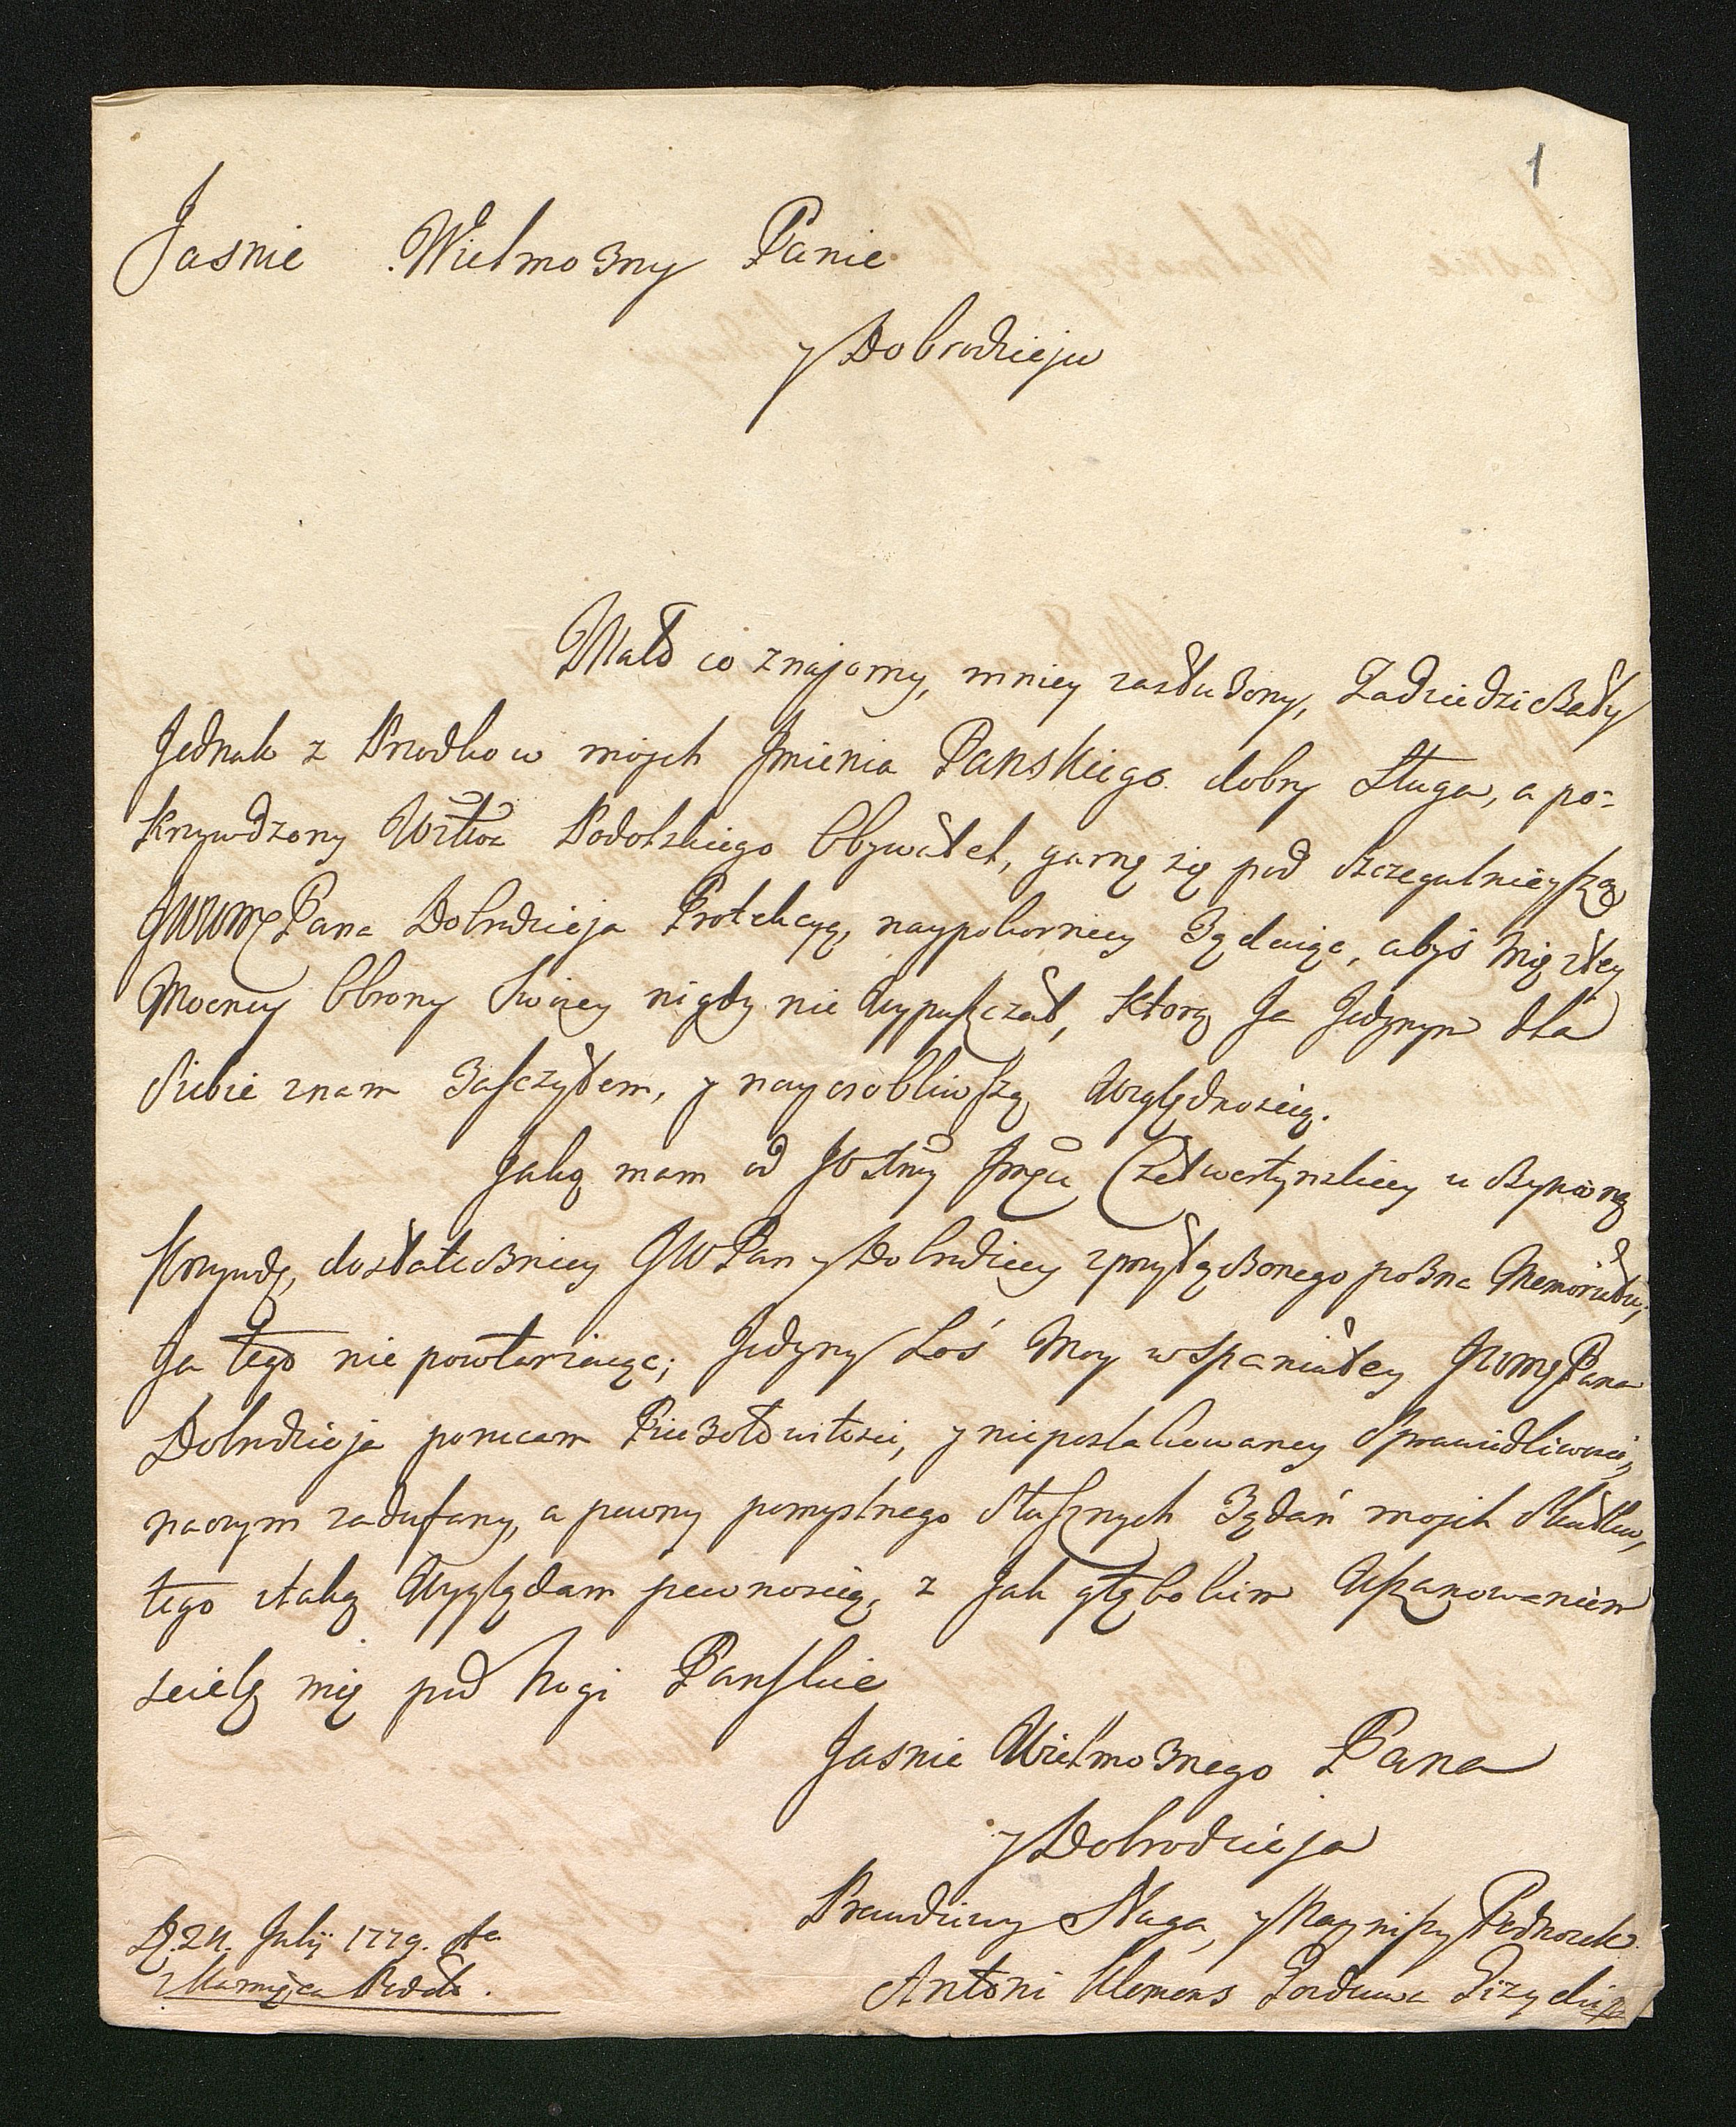 1
Jasnie Wielmożny Panie
y Dobrodzieju
Mało co znajomy, mniey zasłużony, Zadziedziczały
Jednak z Przodkow mojch Jmienia Panskiego dobry Sługa, a po=
krzywdzony Wztwa Podolskiego Obywatel, garnę się pod szczegulnieyszą
JWWMPana Dobrodzieja Protekcyą, naypokorniey żądaiąc, abyś mię z tey
Mocney Obrony Swoiey nigdy nie wypuszczał, ktorą Ja Jedynym dla
Siebie znam zaszczytem, y nayosobliwszą względnością.
Jaką mam od JO Czetwertynskiey uczynioną
Krzywdę, dostateczniey JWPan y Dobrodziey z przyłączonego pozna Memoriału,
Ja tego nie powtarzaiąc; Jedyny Los moy wspaniałey JWWMPana
Dobrodzieja porucam Pieczołowitości, y nieposzlakowaney Sprawiedliwości,
na czym zadufany, a pewny pomyslnego słusznych żądań mojch Skutku,
tego z taką wyglądam pewnością, z Jak głębokim Uszanowaniem
scielę mię pod Nogi Panskie
Jasnie Wielmożnego Pana
y Dobrodzieja
Prawdziwy Sługa, y Nayniższy Podnożek
Antoni Klemens Gizycki
D. 24. Julij 1779. A.
z Podol.